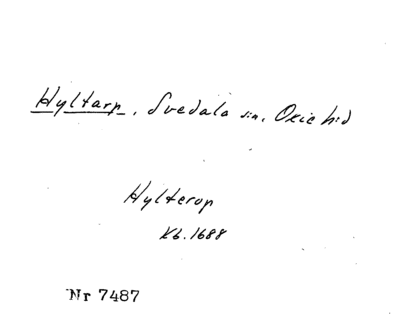 Hyltarp, Svedala sn, Oxie hd
Hylterop
Kb. 1688
Nr 7487